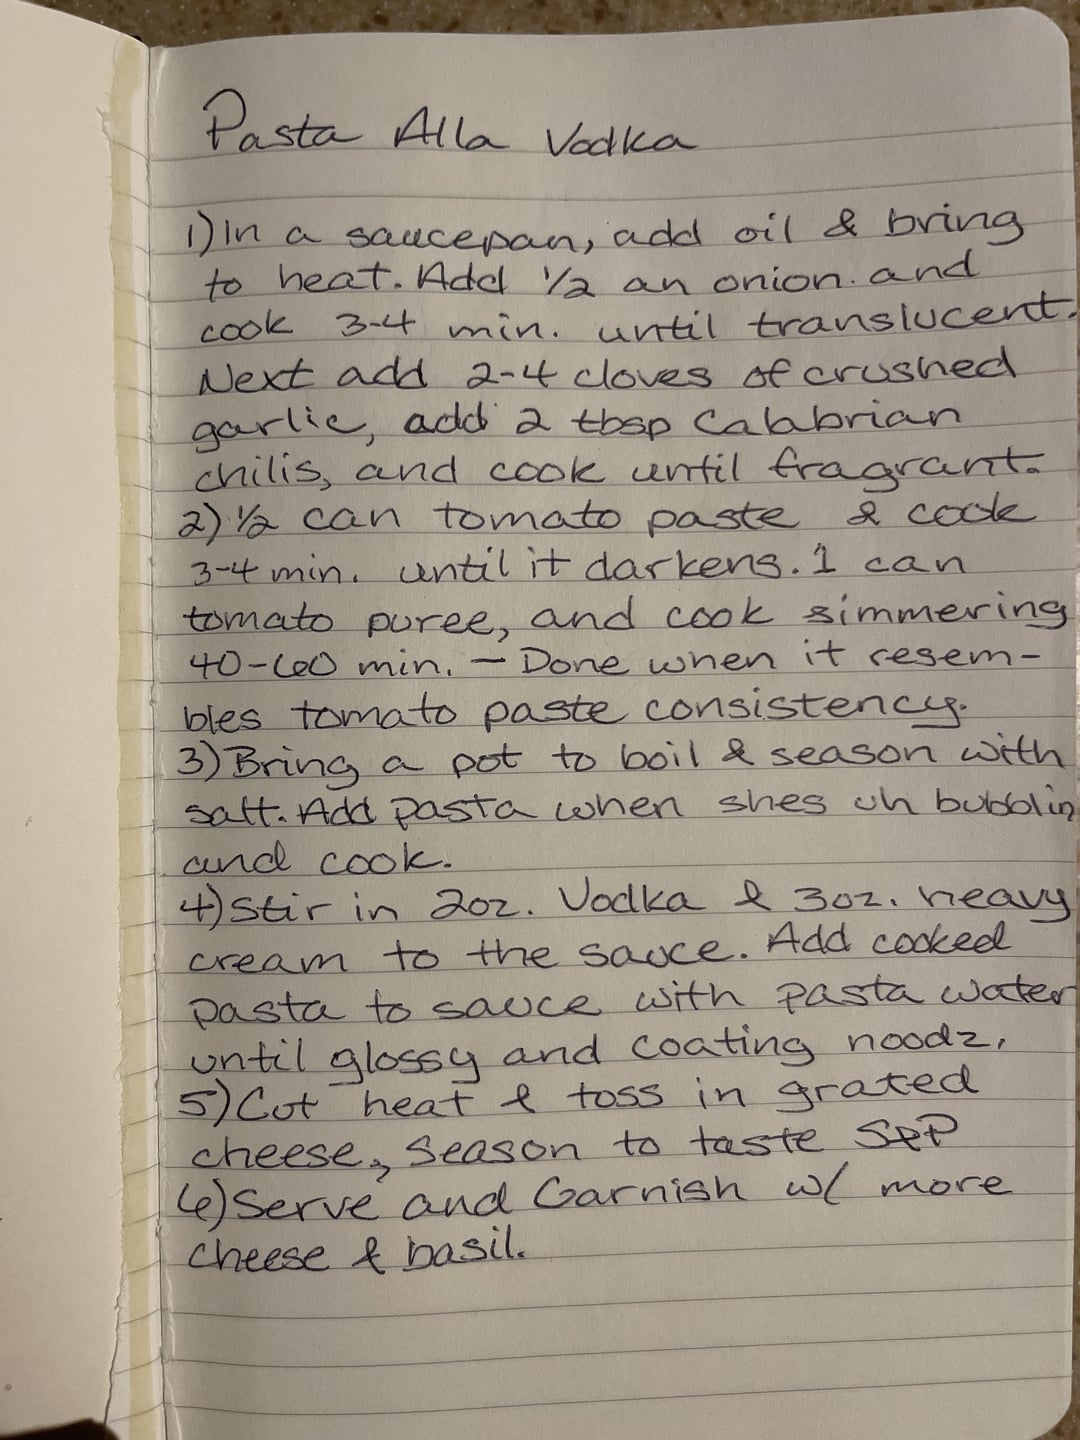 Pasta Alla Vodka
1) In a saucepan, add oil & bring
to heat. Add 1/2 an onion and
cook 3-4 min. until translucent.
Next add 2-4 cloves of crushed
garlic, add 2 tbsp Calabrian
chilis, and cook until fragrant.
2) 1/2 can tomato paste & cook
3-4 min. until it darkens. 1 can
tomato puree, and cook simmering
40-60 min. — Done when it resem-
bles tomato paste consistency.
3) Bring a pot to boil & season with
salt. Add pasta when shes uh bubblin
and cook.
4) Stir in 2oz. Vodka & 3oz. heavy
cream to the sauce. Add cooked
pasta to sauce with pasta water
until glossy and coating noodz.
5) Cut heat & toss in grated
cheese, Season to taste S&P
6) Serve and Garnish w/ more
cheese & basil.